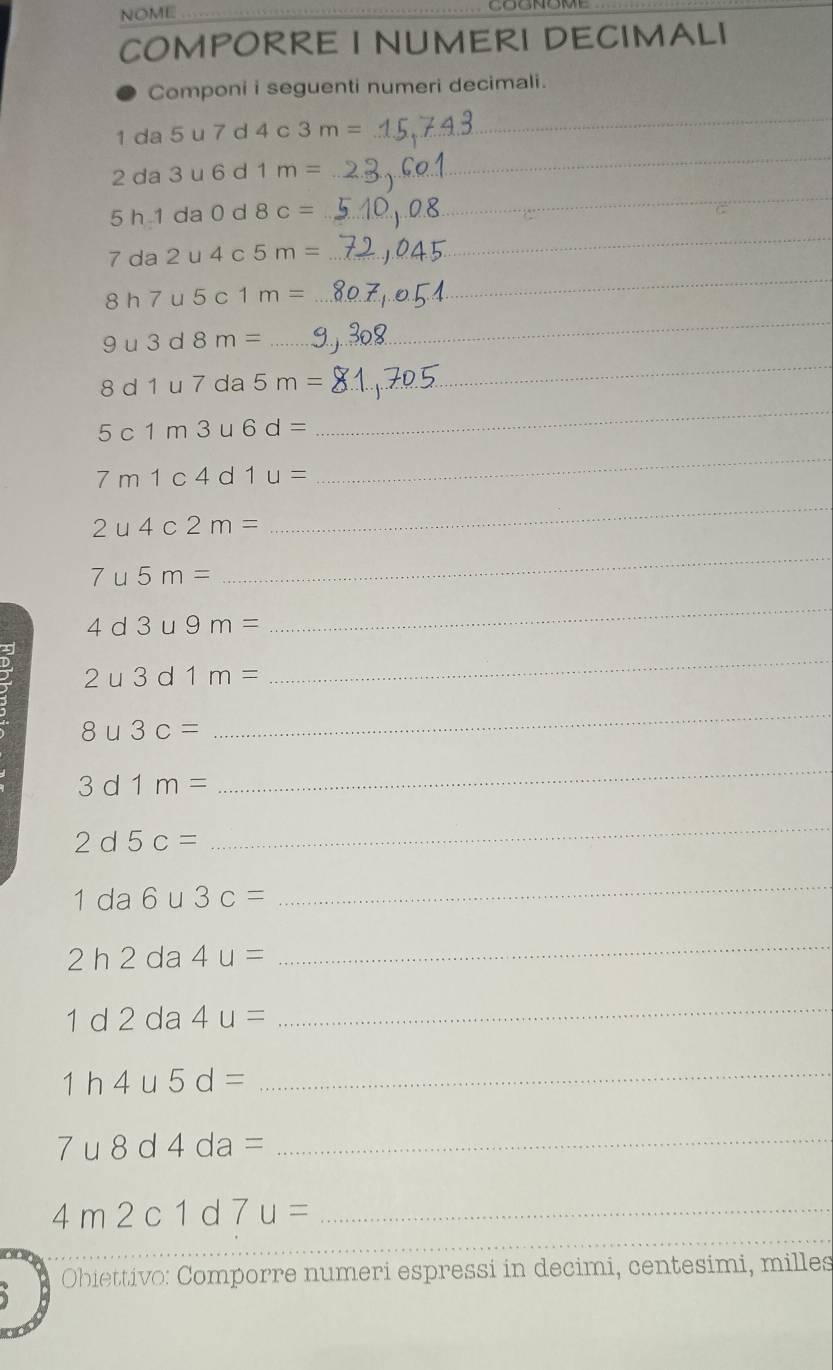 NOME COGNOME
COMPORRE I NUMERI DECIMALI
● Componi i seguenti numeri decimali.
1 da 5 u 7 d 4 c 3 m = 15,743
2 da 3 u 6 d 1 m = 23,601
5 h 1 da 0 d 8 c = 510,08
7 da 2 u 4 c 5 m = 72,045
8 h 7 u 5 c 1 m = 807,051
9 u 3 d 8 m = 9,308
8 d 1 u 7 da 5 m = 81,705
5 c 1 m 3 u 6 d =
7 m 1 c 4 d 1 u =
2 u 4 c 2 m =
7 u 5 m =
4 d 3 u 9 m =
2 u 3 d 1 m =
8 u 3 c =
3 d 1 m =
2 d 5 c =
1 da 6 u 3 c =
2 h 2 da 4 u =
1 d 2 da 4 u =
1 h 4 u 5 d =
7 u 8 d 4 da =
4 m 2 c 1 d 7 u =
Obiettivo: Comporre numeri espressi in decimi, centesimi, milles